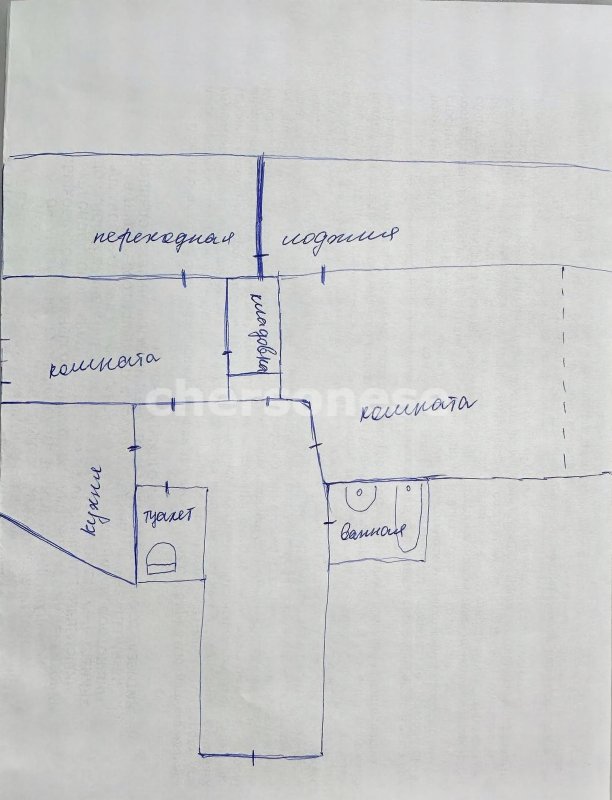 переходная лоджия
кладовка
комната
chersonese
комната
кухни
туалет
ванная